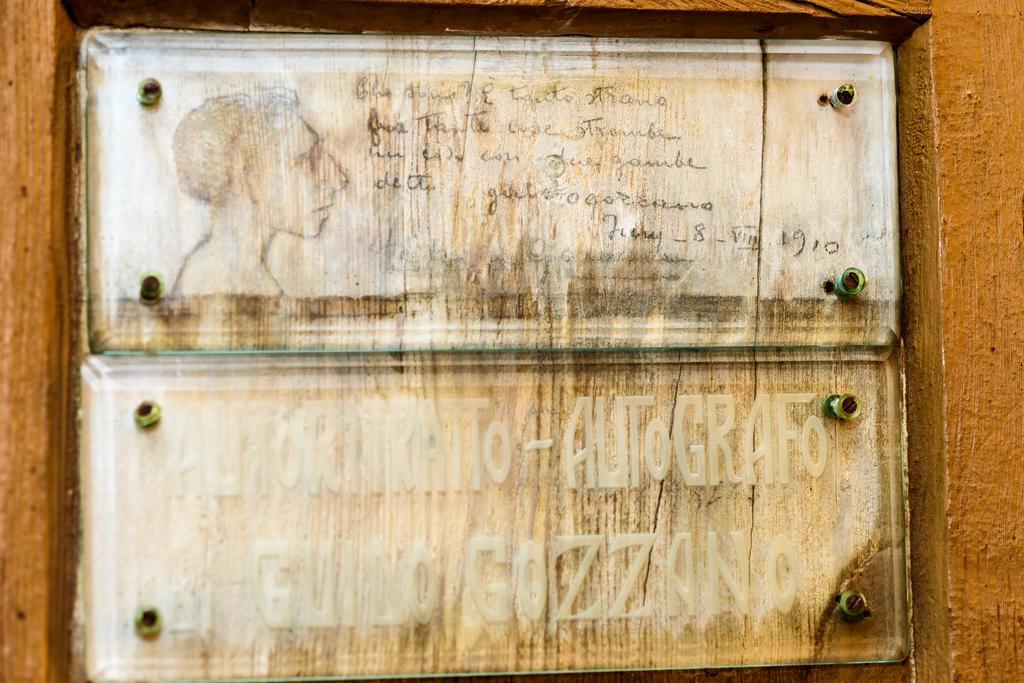 Chi sono? È tanto strano
fra tante cose strambe
un coso con due gambe
detto guidogozzano
8 - VIII. 1910
AUTORITRATTO - AUTOGRAFO
DI GUIDO GOZZANO